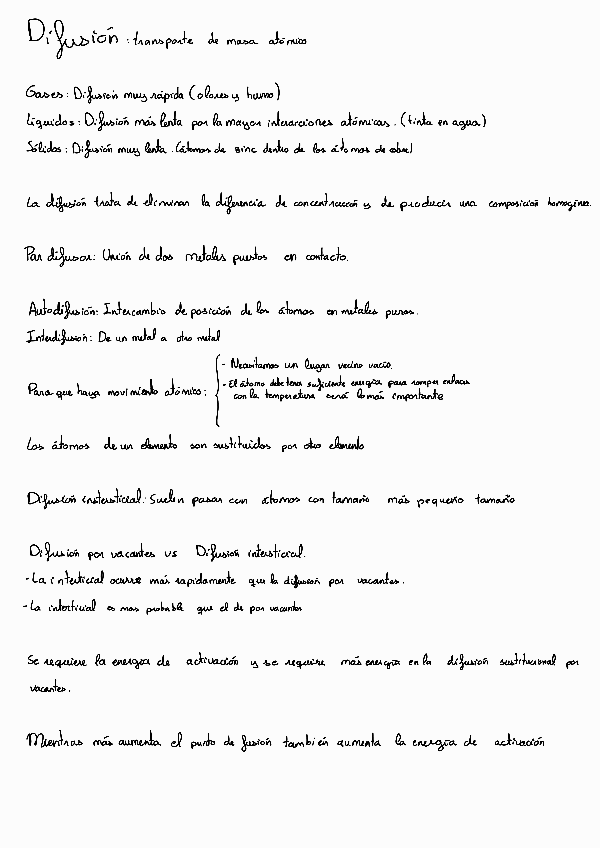 Difusión: transporte de masa atómico
Gases: Difusión muy rápida (olores y humo)
Líquidos: Difusión más lenta por la mayor interacciones atómicas. (tinta en agua)
Sólidos: Difusión muy lenta. (átomos de zinc dentro de los átomos de cobre)
La difusión trata de eliminar la diferencia de concentración y de producir una composición homogénea.
Par difusor: Unión de dos metales puestos en contacto.
Autodifusión: Intercambio de posición de los átomos en metales puros.
Interdifusión: De un metal a otro metal
Para que haya movimiento atómico:
- Necesitamos un lugar vecino vacío.
- El átomo debe tener suficiente energía para romper enlaces
con la temperatura será lo más importante
Los átomos de un elemento son sustituidos por otro elemento
Difusión intersticial: Suelen pasar con átomos con tamaño más pequeño tamaño
Difusión por vacantes vs Difusión intersticial.
- La intersticial ocurre más rapidamente que la difusión por vacantes.
- La intersticial es mas probable que el de por vacantes
Se requiere la energía de activación y se requiere más energía en la difusión sustitucional por
vacantes.
Mientras más aumenta el punto de fusión también aumenta la energía de activación